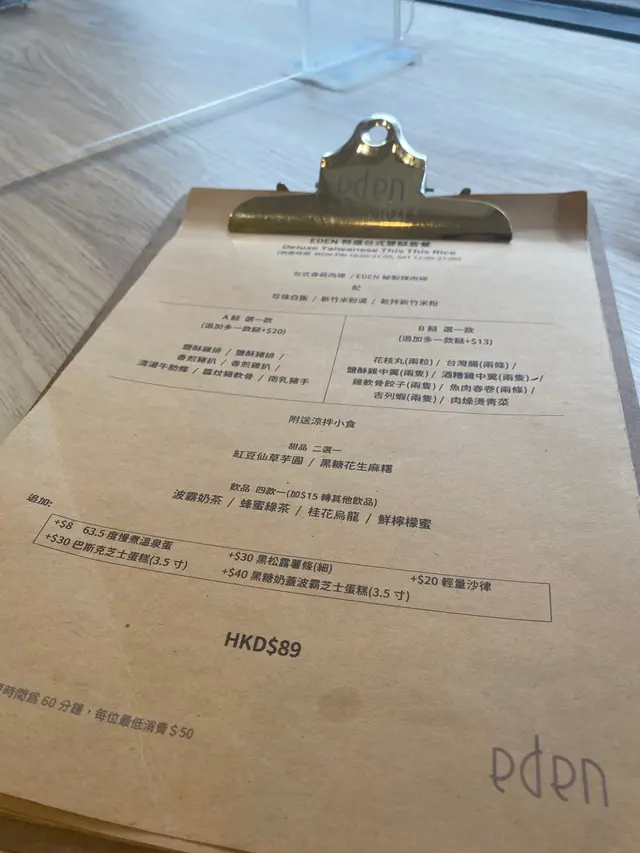 eden
EDEN 特盛台式雙餸套餐
Deluxe Taiwanese This This Rice
台式香菇肉燥 / EDEN 秘製辣肉碎
配
珍珠白飯 / 新竹米粉湯 / 乾拌新竹米粉
A 餸 選一款
(追加多一款餸+$20)
鹽酥雞排 / 鹽酥豬排 /
香煎豬扒 / 香煎雞扒 /
清湯牛肋條 / 醬炆豬軟骨 / 南乳豬手
B 餸 選一款
(追加多一款餸+$13)
花枝丸(兩粒) / 台灣腸(兩條) /
鹽酥雞中翼(兩隻) / 酒糟雞中翼(兩隻) /
雞軟骨餃子(兩隻) / 魚肉春卷(兩條) /
吉列蝦(兩隻) / 肉燥燙青菜
附送涼拌小食
甜品 二選一
紅豆仙草芋圓 / 黑糖花生麻糬
飲品 四款一(加$15 轉其他飲品)
波霸奶茶 / 蜂蜜綠茶 / 桂花烏龍 / 鮮檸檬蜜
追加:
+$8 63.5 度慢煮溫泉蛋 +$30 黑松露薯條(細) +$20 輕量沙律
+$30 巴斯克芝士蛋糕(3.5 寸) +$40 黑糖奶蓋波霸芝士蛋糕(3.5 寸)
HKD$89
時間為 60 分鐘，每位最低消費 $50
eden